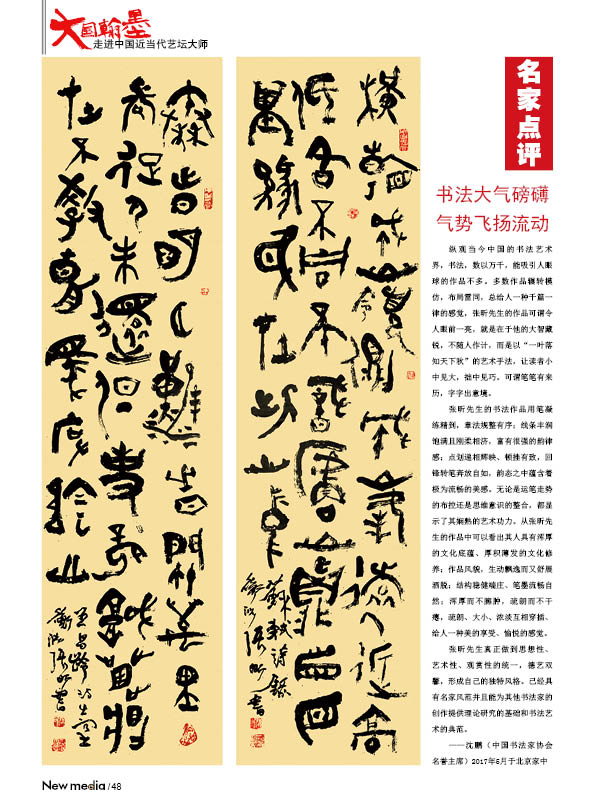 大国翰墨
走进中国近当代艺坛大师
名家点评
书法大气磅礴
气势飞扬流动
纵观当今中国的书法艺术
界，书法，数以万千，能吸引人眼
球的作品不多。多数作品辗转模
仿，布局雷同，总给人一种千篇一
律的感觉，张昕先生的作品可谓令
人眼前一亮，就是在于他的大智藏
锐，不随人作计，而是以“一叶落
知天下秋”的艺术手法，让读者小
中见大，拙中见巧。可谓笔笔有来
历，字字出意境。
张昕先生的书法作品用笔凝
练精到，章法规整有序；线条丰润
饱满且刚柔相济，富有很强的韵律
感；点划递相辉映、顿挫有致，回
锋转笔奔放自如，韵态之中蕴含着
极为流畅的美感。无论是运笔走势
的布控还是思维意识的整合，都显
示了其娴熟的艺术功力。从张昕先
生的作品中可以看出其人具有浑厚
的文化底蕴、厚积薄发的文化修
养；作品风貌，生动飘逸而又舒展
洒脱；结构稳健端庄、笔墨流畅自
然；浑厚而不臃肿，疏朗而不干
瘪，疏朗、大小、浓淡互相穿插、
给人一种美的享受、愉悦的感觉。
张昕先生真正做到思想性、
艺术性、观赏性的统一，德艺双
馨，形成自己的独特风格。已经具
有名家风范并且能为其他书法家的
创作提供理论研究的基础和书法艺
术的典范。
——沈鹏（中国书法家协会
名誉主席）2017年5月于北京家中
橫看成嶺側成峯遠近高
低各不同不識廬山真面目
緣身在此山中
蘇軾詩
秦時明月漢時關萬里
長征人未還但使龍城飛將
在不教胡馬度陰山
王昌齡詩出塞
New media / 48